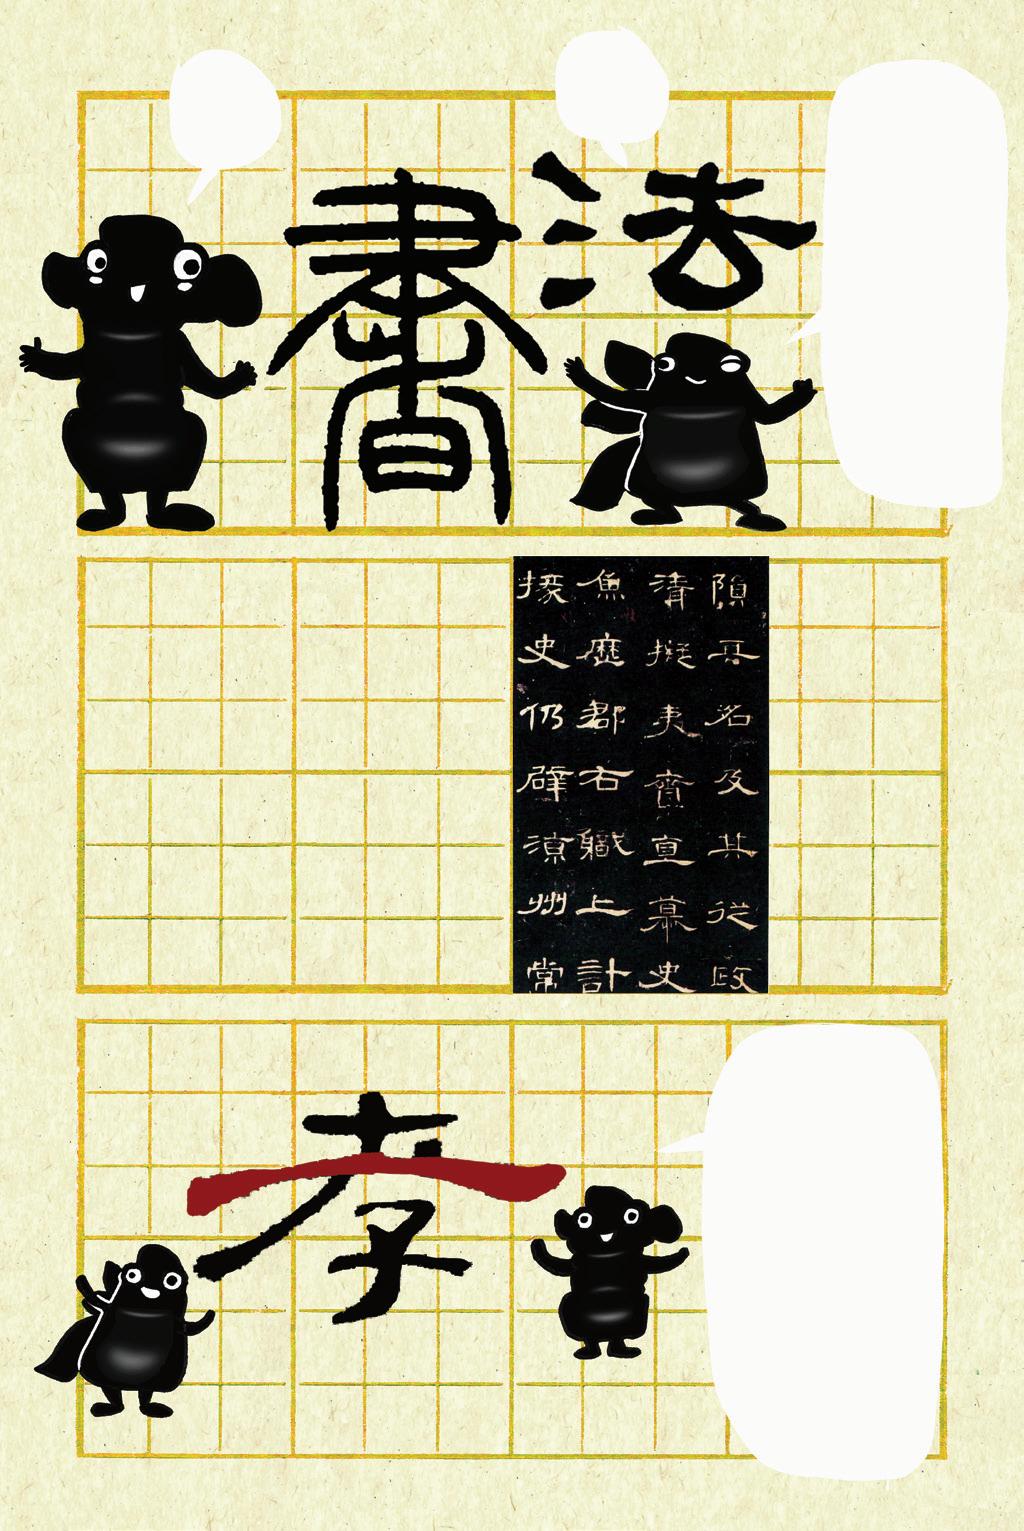 書法
隕其名及其從政
清擬夷齊直慕史
魚歷郡右職上計
掾史仍辟涼州常
孝